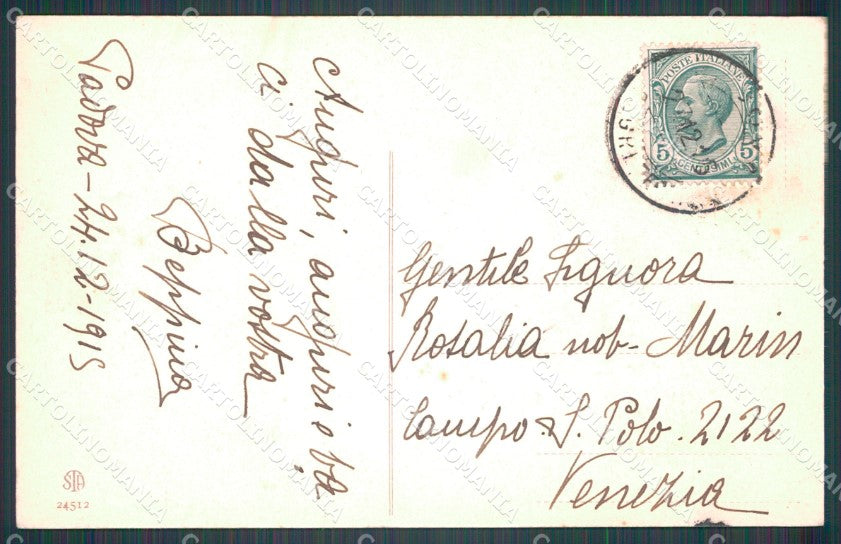 Padova - 24.12-1915
Auguri, auguri e ba
ci dalla vostra
Beppina
POSTE ITALIANE
5 5
CENTESIMI
Gentile Signora
Rosalia nob- Marin
Campo. S. Polo. 2122
Venezia
STA
24512
CARTOLINOMANIA